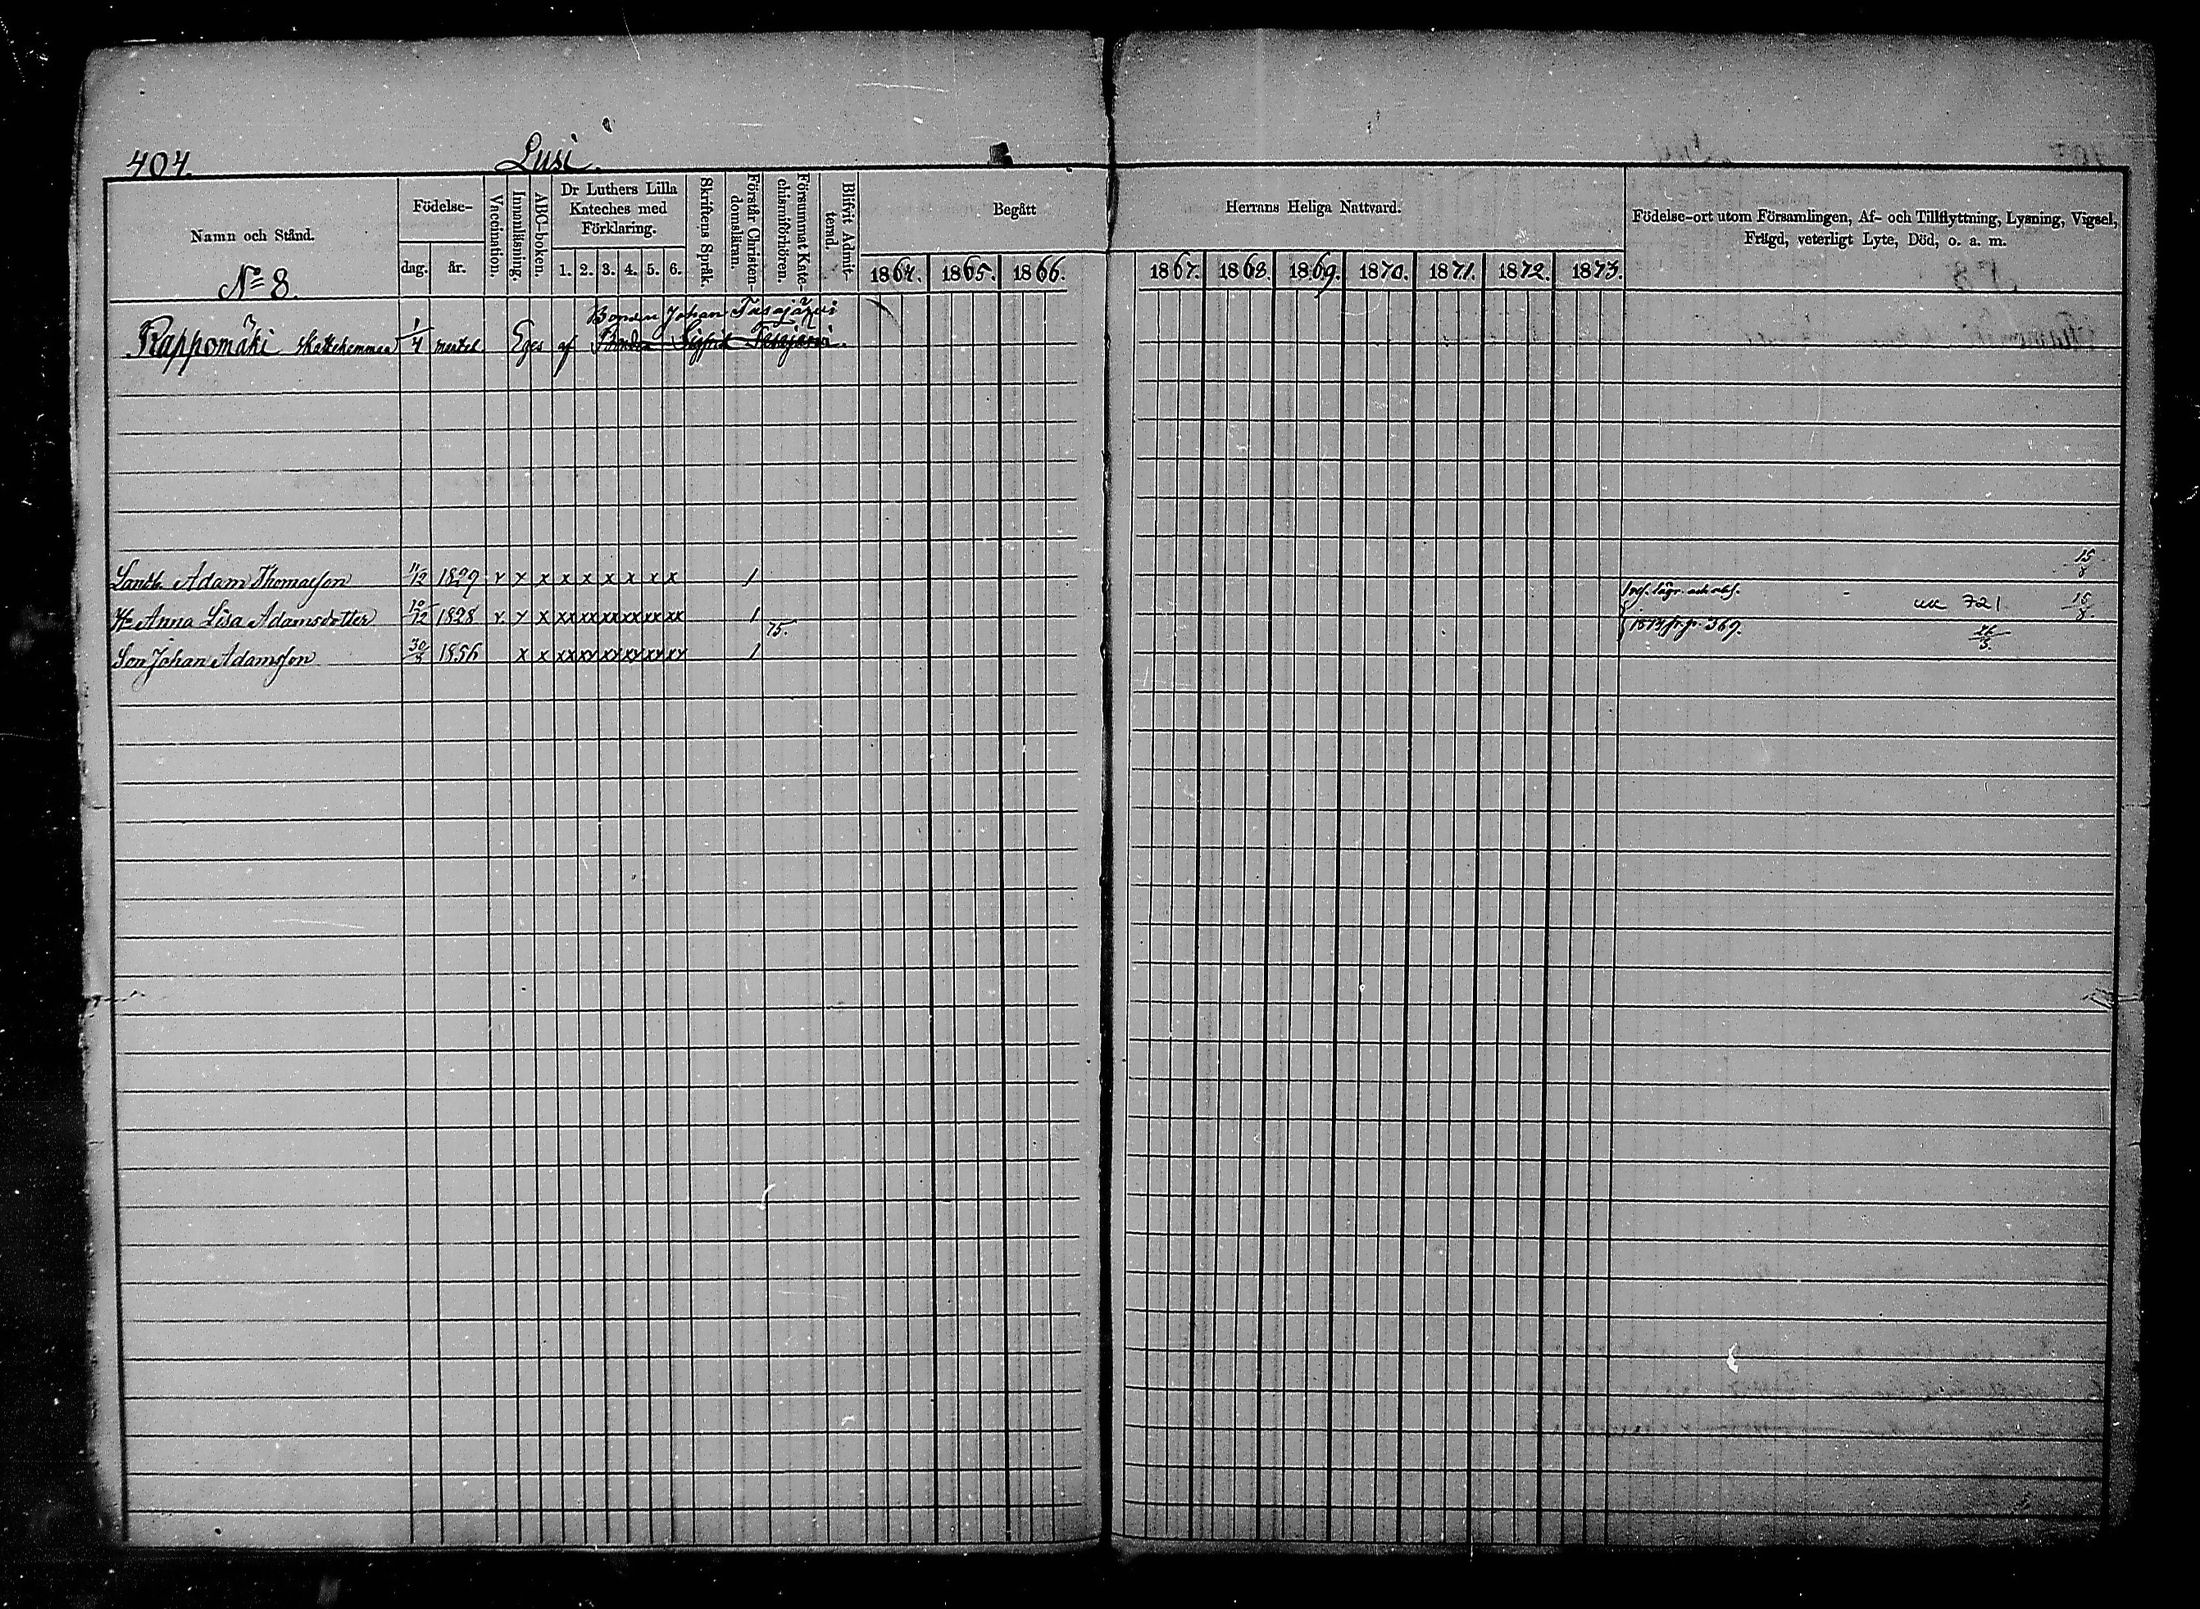 404. Lusi.
Namn och Stånd.
Nº 8.
Födelse-
dag. år.
Vaccination.
Innanläsning.
ABC-boken.
Dr Luthers Lilla
Kateches med
Förklaring.
1. 2. 3. 4. 5. 6.
Skriftens Språk.
Förstår Christen-
domsläran.
Försummat Kate-
chismiförhören.
Blifvit Admit-
terad.
Begått Herrans Heliga Nattvard.
1864. 1865. 1866. 1867. 1868. 1869. 1870. 1871. 1872. 1873.
Födelse-ort utom Församlingen, Af- och Tillflyttning, Lysning, Vigsel,
Frägd, veterligt Lyte, Död, o. a. m.
Bonden Johan Tasajärvi
Rappomäki skattehemman 1/4 mantal Eges af Bonden Sigfrid Tasajärvi.
15/8
Adam Thomasson 11/12 1829 v v x x x x x x x 1
Anna Lisa Adamsdotter 10/12 1828 v v x xx xx xx xx xx xx 1 721 15/8.
75. 369. 26/3.
Son Johan Adamsson 30/8 1856 x x xx xx xx xx xx xx 1